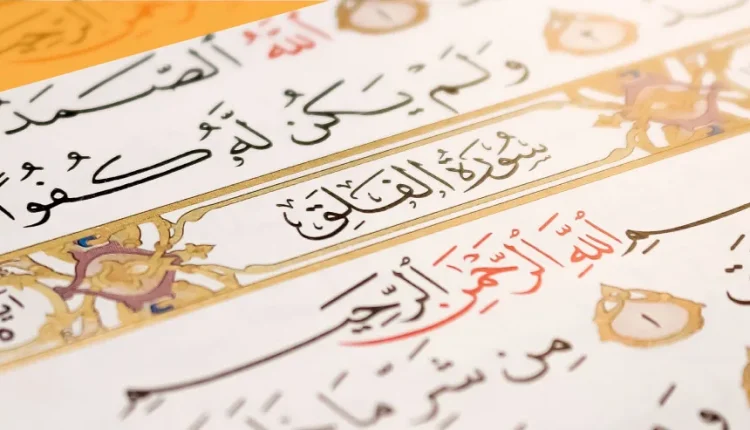 ٱللَّهُ ٱلصَّمَدُ
وَلَمْ يَكُن لَّهُۥ كُفُوًا
سُورَةُ ٱلْفَلَقِ
ٱللَّهِ ٱلرَّحْمَٰنِ ٱلرَّحِيمِ
١
مِن شَرِّ مَا